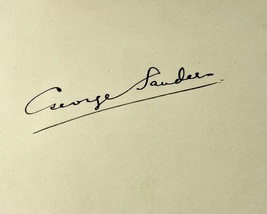 George Sanders